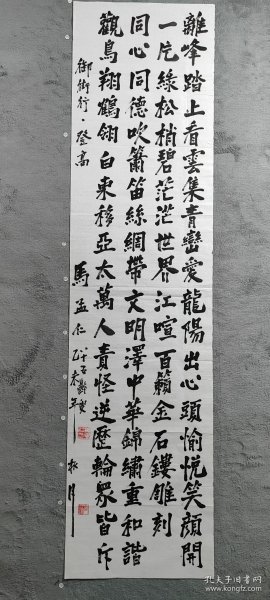 離峰踏上看雲集青巒愛龍陽出心頭愉悦笑顔開
一片綠松梢碧茫茫世界江喧百籟金石鏤雕刻
同心同德吹簫笛絲綢帶文明澤中華錦繡重和諧
觀鳥翔鶴翎白東移亞太萬人責怪逆歷輪眾皆斥
御街行·登高
馬孟仁
乙未年
孔夫子旧书网